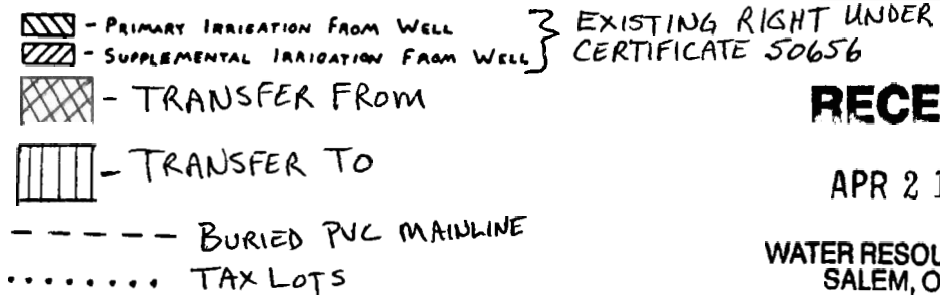 - PRIMARY IRRIGATION FROM WELL
- SUPPLEMENTAL IRRIGATION FROM WELL
} EXISTING RIGHT UNDER
CERTIFICATE 50656
- TRANSFER FROM
- TRANSFER TO
BURIED PVC MAINLINE
TAX LOTS
RECE
APR 2 1
WATER RESOU
SALEM, O